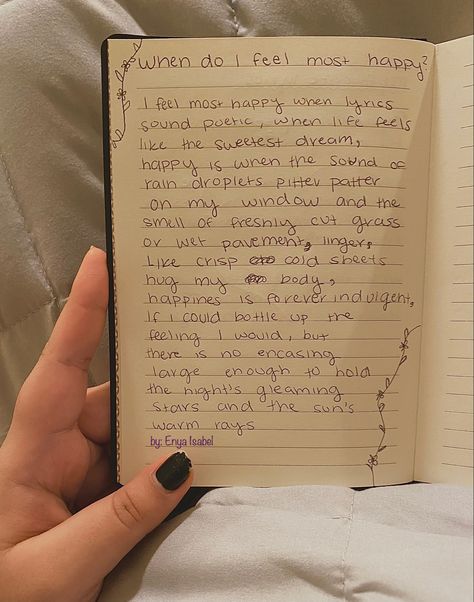 When do I feel most happy?
I feel most happy when lyrics
sound poetic, when life feels
like the sweetest dream,
happy is when the sound of
rain droplets pitter patter
on my window and the
smell of freshly cut grass
or wet pavement, lingers
Like crisp cold sheets
hug my body,
happines is forever indulgent,
If I could bottle up the
feeling I would, but
there is no encasing
large enough to hold
the night's gleaming
stars and the sun's
warm rays
by: Enya Isabel